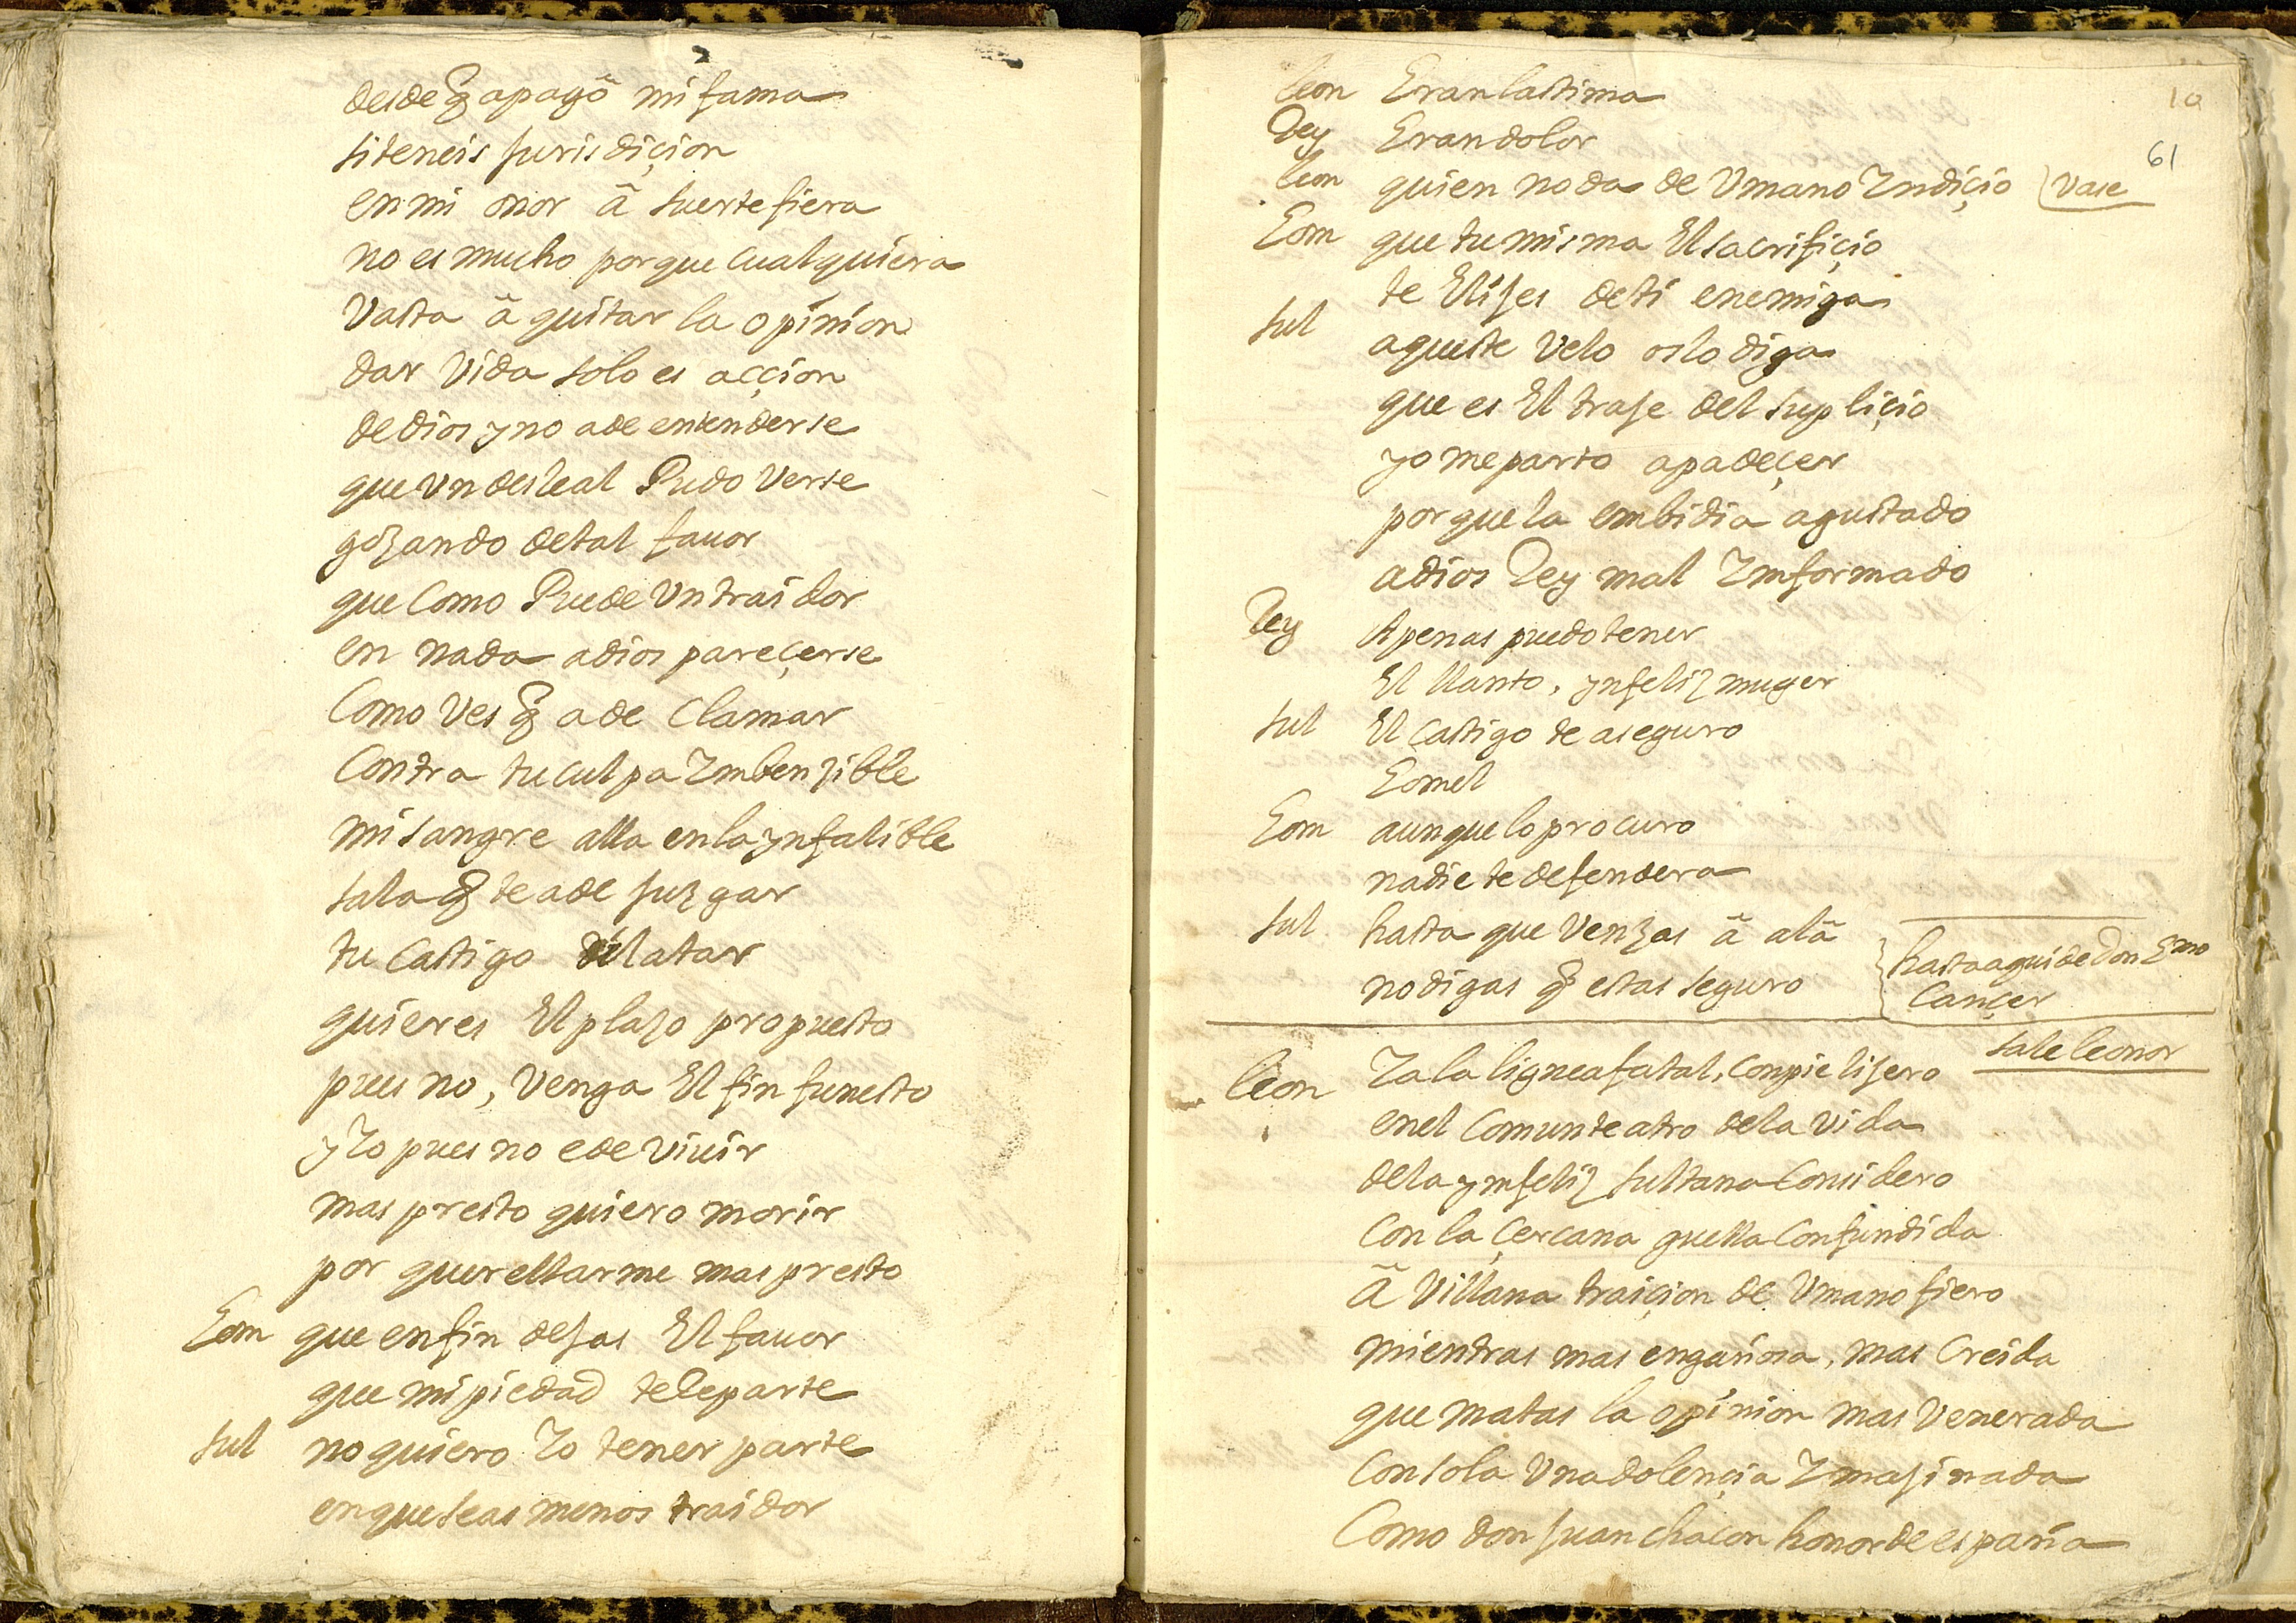 desde q̃ apagõ mi fama
si teneis jurisdiçion
en mi onor ã suerte fiera
no es mucho porque cualquiera
Vasta ã quitar la opinion
dar Vida solo es acçion
de dios y no a de entenderse
que Vn desleal Pudo Verse
goçando de tal fauor
que Como Puede Vn traidor
en nada a dios pareçerse
Como Ves q̃ a de Clamar
Contra tu culpa Imbenzible
mi sangre alla en la ynfalible
sala q̃ te a de juzgar
tu Castigo dilatar
quieres El plaso propuesto
pues no, Venga El fin funesto
y Yo pues no e de Viuir
mas presto quiero morir
por querellarme mas presto
Gom que en fin dejas El fauor
que mi piedad te Reparte
sul no quiero Yo tener parte
en que seas menos traidor
10
61
leon Gran lastima
Rey Gran dolor
leon quien no da de Vmano Indiçio Vase
Gom que tu misma El sacrifiçio
te Elijes de ti enemiga
sul aqueste Velo os lo diga
que es El traje del supliçio
yo me parto a padeçer
porque la embidia a gustado
a dios Rey mal Imformado
Rey Apenas puedo tener
El llanto, ynfeliz muger
sul El Castigo te aseguro
Gomel
Gom aunque lo procuro
nadie te defendera
sul hasta que Venzas ã alã
no digas q̃ estas seguro
hasta aqui de Don Gmo
Cançer
sale leonor
leon Ya la lignea fatal, Con pie lijero
en el Comun teatro de la Vida
de la ymfeliz sultana Considero
Con la Çercana guella Confundida
ã Villana traiçion de Vmano fiero
mientras mas engañosa, mas Creida
que matas la opinion mas Venerada
Con sola Vna dolençia Imajinada
Como don Juan chacon honor de españa